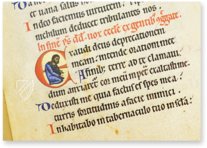 In deo faciemus uirtutem
nichilum deducet tribulantes nos
In fine ps dd uox eccle
Exaudi deus deprecationem
meam: intende orationi me
A finib; terre ad te clamaui
dum anxiaret cor meum: in petra exaltast
Deduxisti me quia factus es spes mea:
turris fortitudinis a facie inimici
Inhabitabo in tabernaculo tuo in scla: